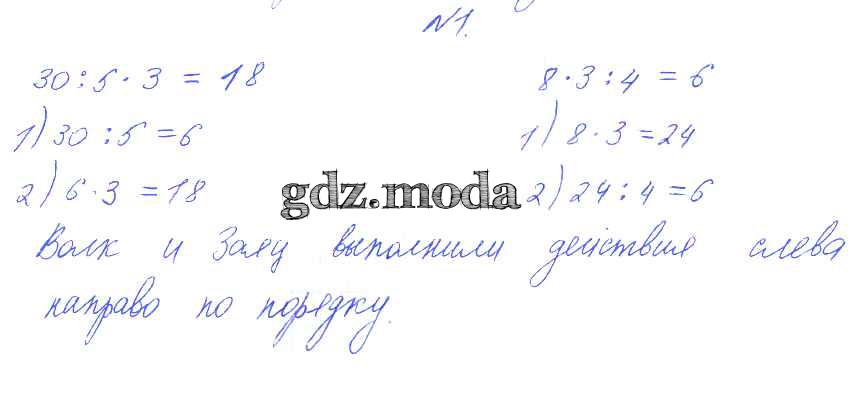 №1.
30 : 5 · 3 = 18
8 · 3 : 4 = 6
1) 30 : 5 = 6
1) 8 · 3 = 24
2) 6 · 3 = 18
gdz.moda
2) 24 : 4 = 6
Волк и Заяц выполнили действия слева
направо по порядку.